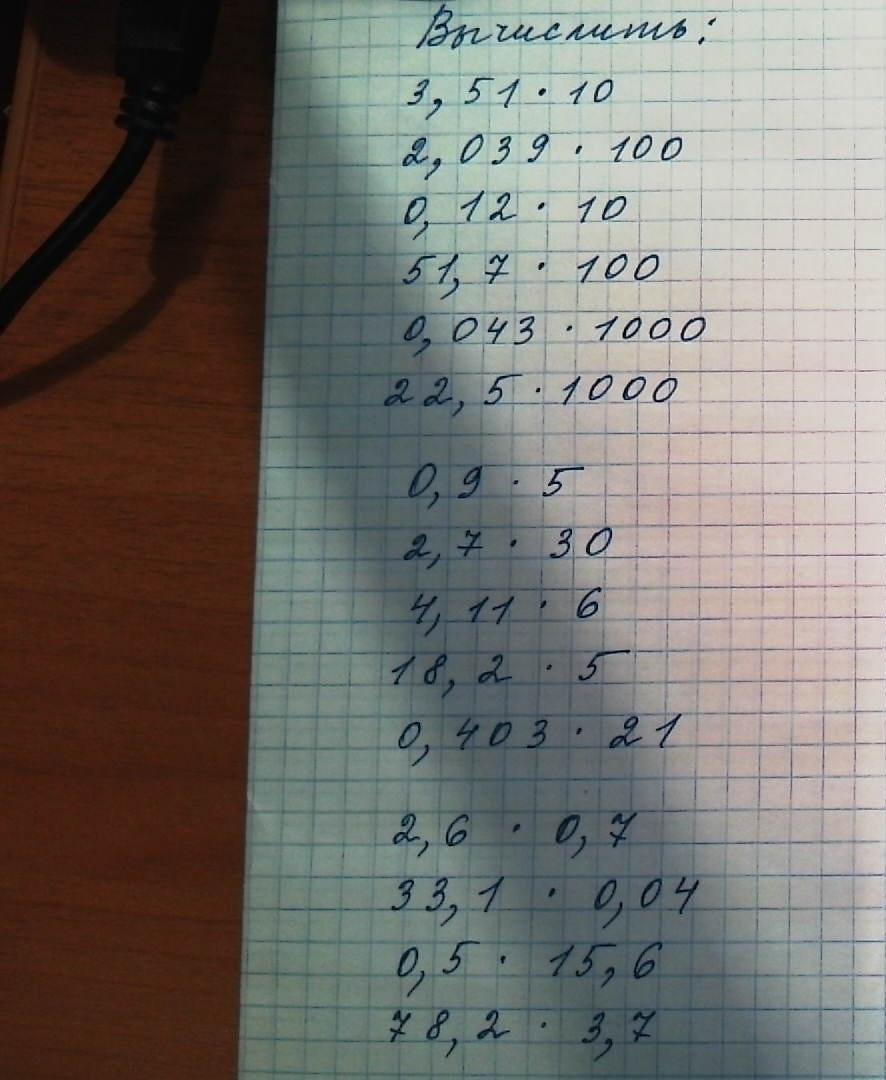 Вычислить:
3,51 · 10
2,039 · 100
0,12 · 10
51,7 · 100
0,043 · 1000
22,5 · 1000
0,9 · 5
2,7 · 30
4,11 · 6
18,2 · 5
0,403 · 21
2,6 · 0,7
33,1 · 0,04
0,5 · 15,6
78,2 · 3,7